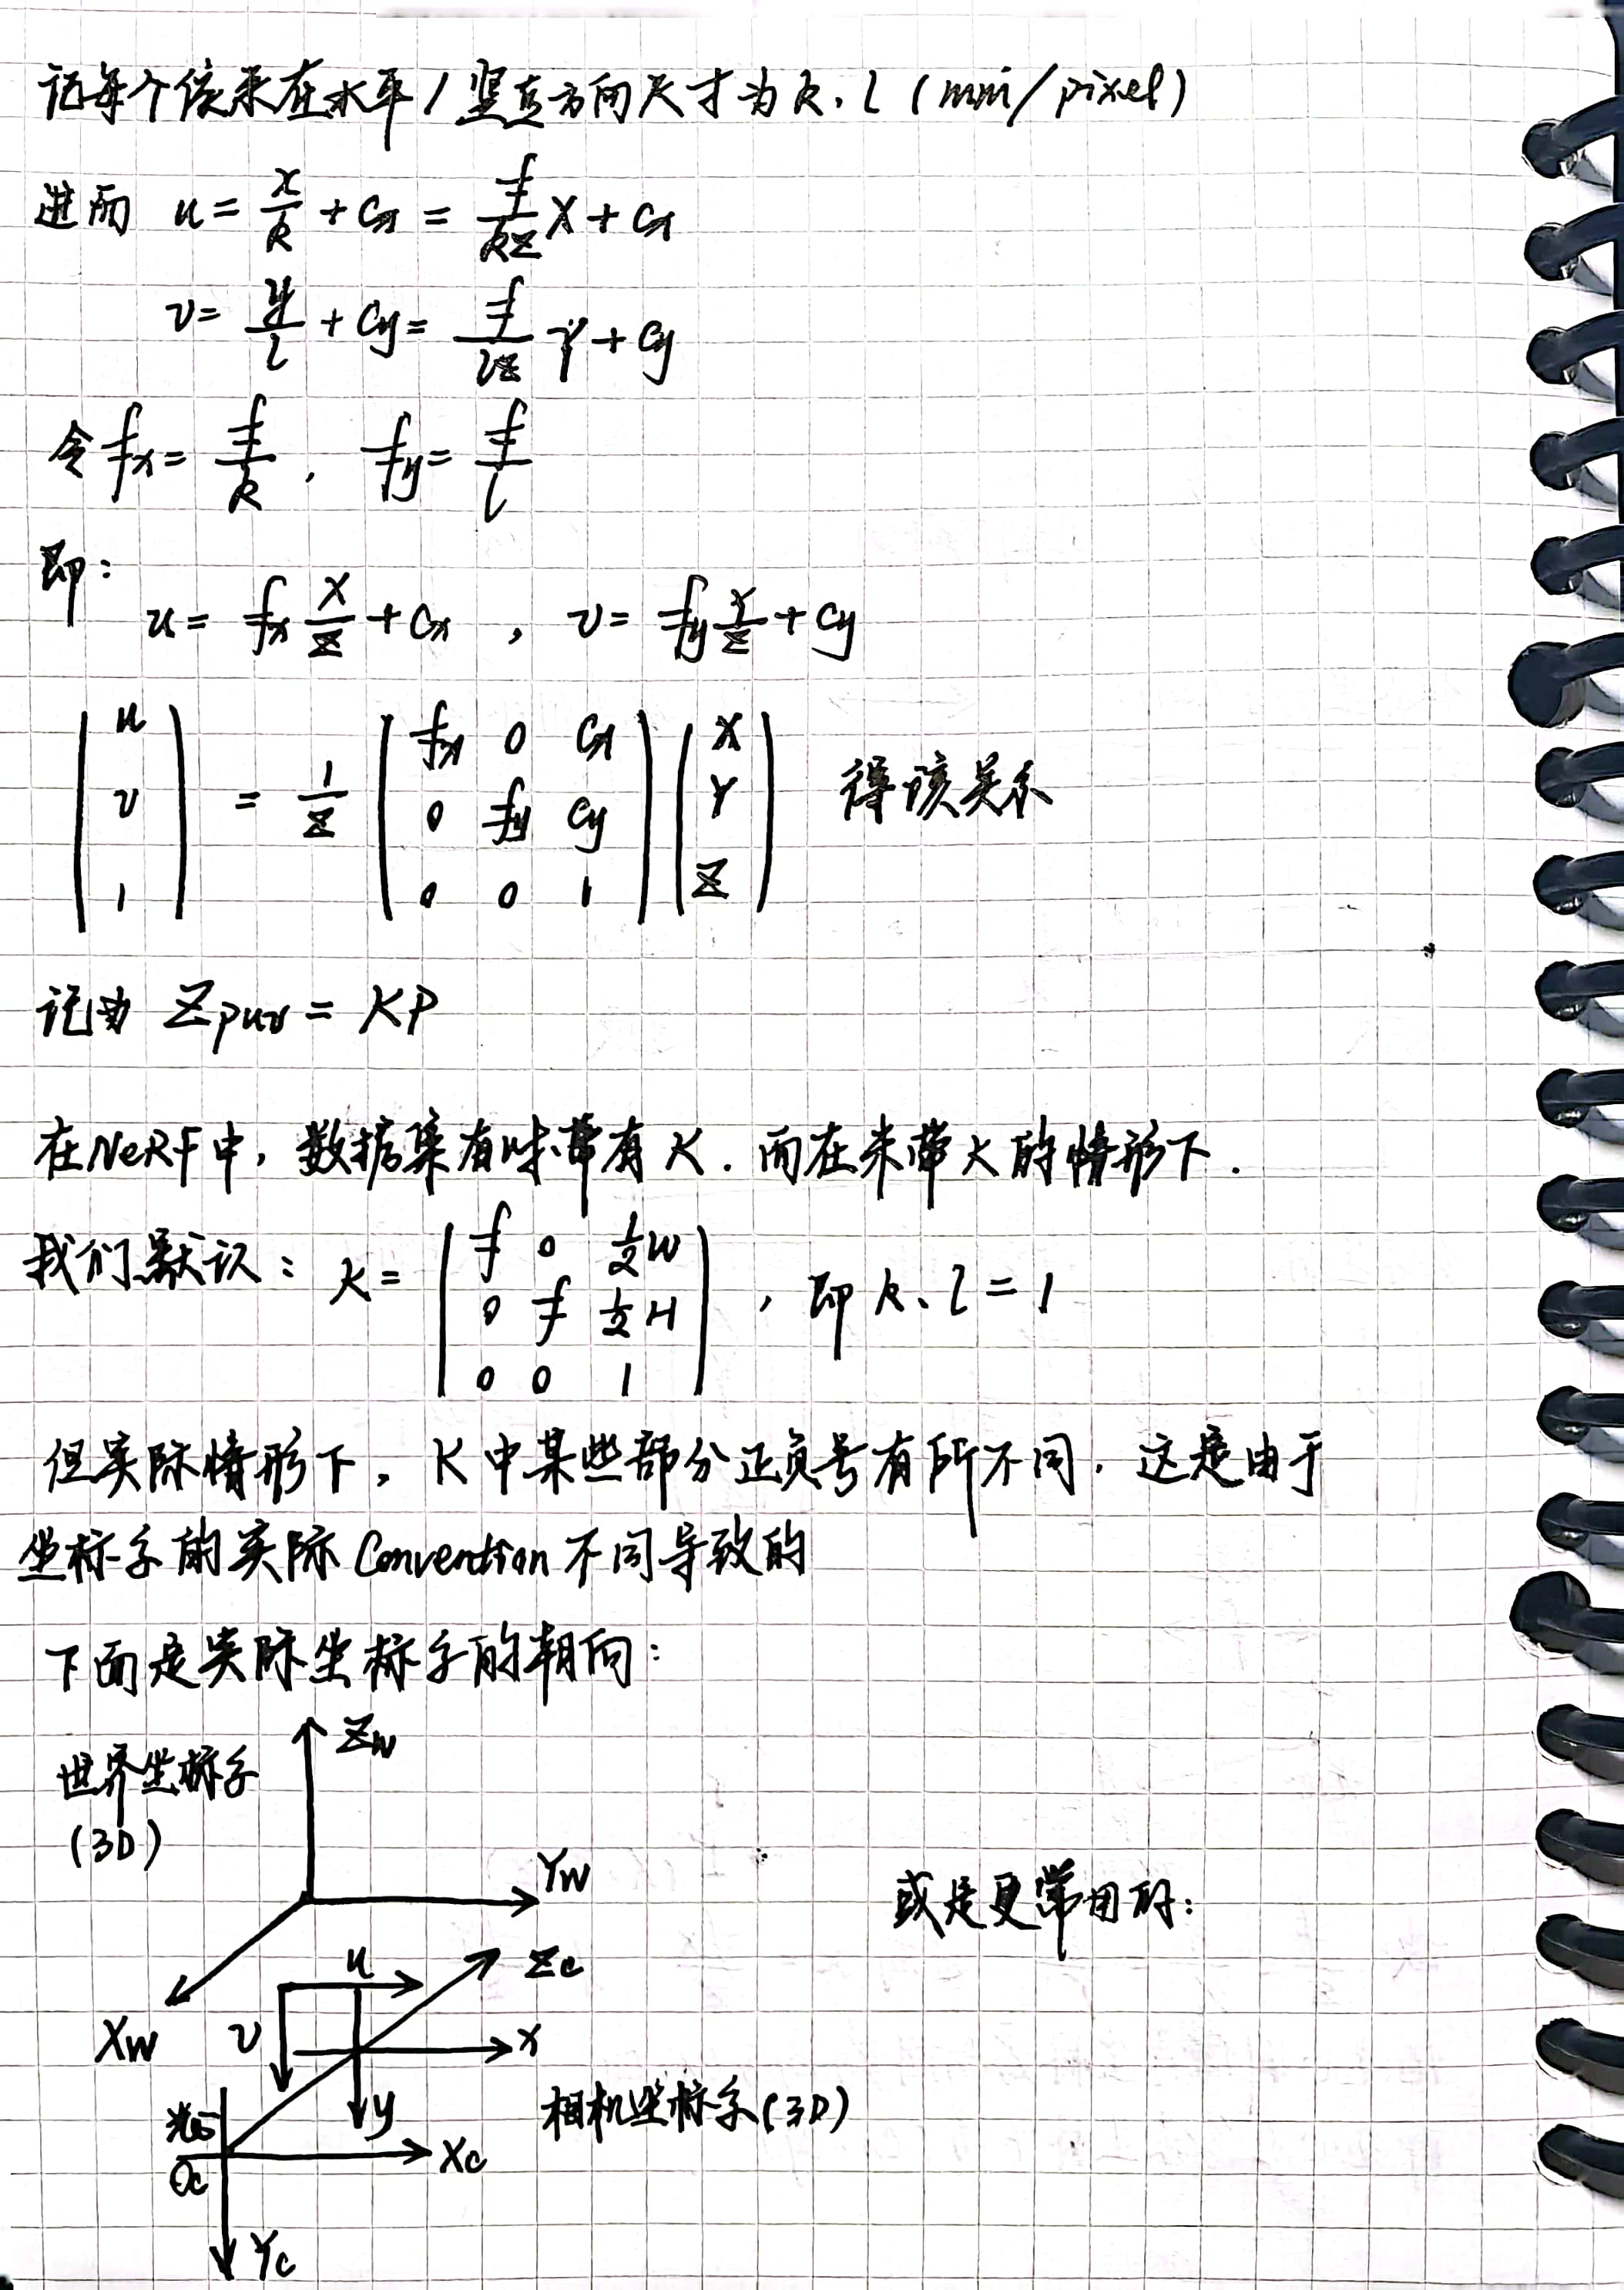 记每个像素在水平/竖直方向尺寸为k,l (mm/pixel)
进而 u = x/k + cx = f/(kz) X + cx
v = y/l + cy = f/(lz) Y + cy
令 fx = f/k , fy = f/l
即:
u = fx X/Z + cx , v = fy Y/Z + cy
(u v 1) = 1/Z (fx 0 cx; 0 fy cy; 0 0 1) (X Y Z) 得该关系
记为 Zpuv = KP
在NeRF中,数据集有时带有K.而在未带K的情形下.
我们默认: K = (f 0 ½W; 0 f ½H; 0 0 1) , 即 k、l = 1
但实际情形下,K中某些部分正负号有所不同.这是由于
坐标系的实际Convention不同导致的
下面是实际坐标系的朝向:
Zw
世界坐标系
(3D)
Yw
或是更常用的:
u
Zc
Xw
v
x
y
相机坐标系(3D)
光心
Oc
Xc
Yc